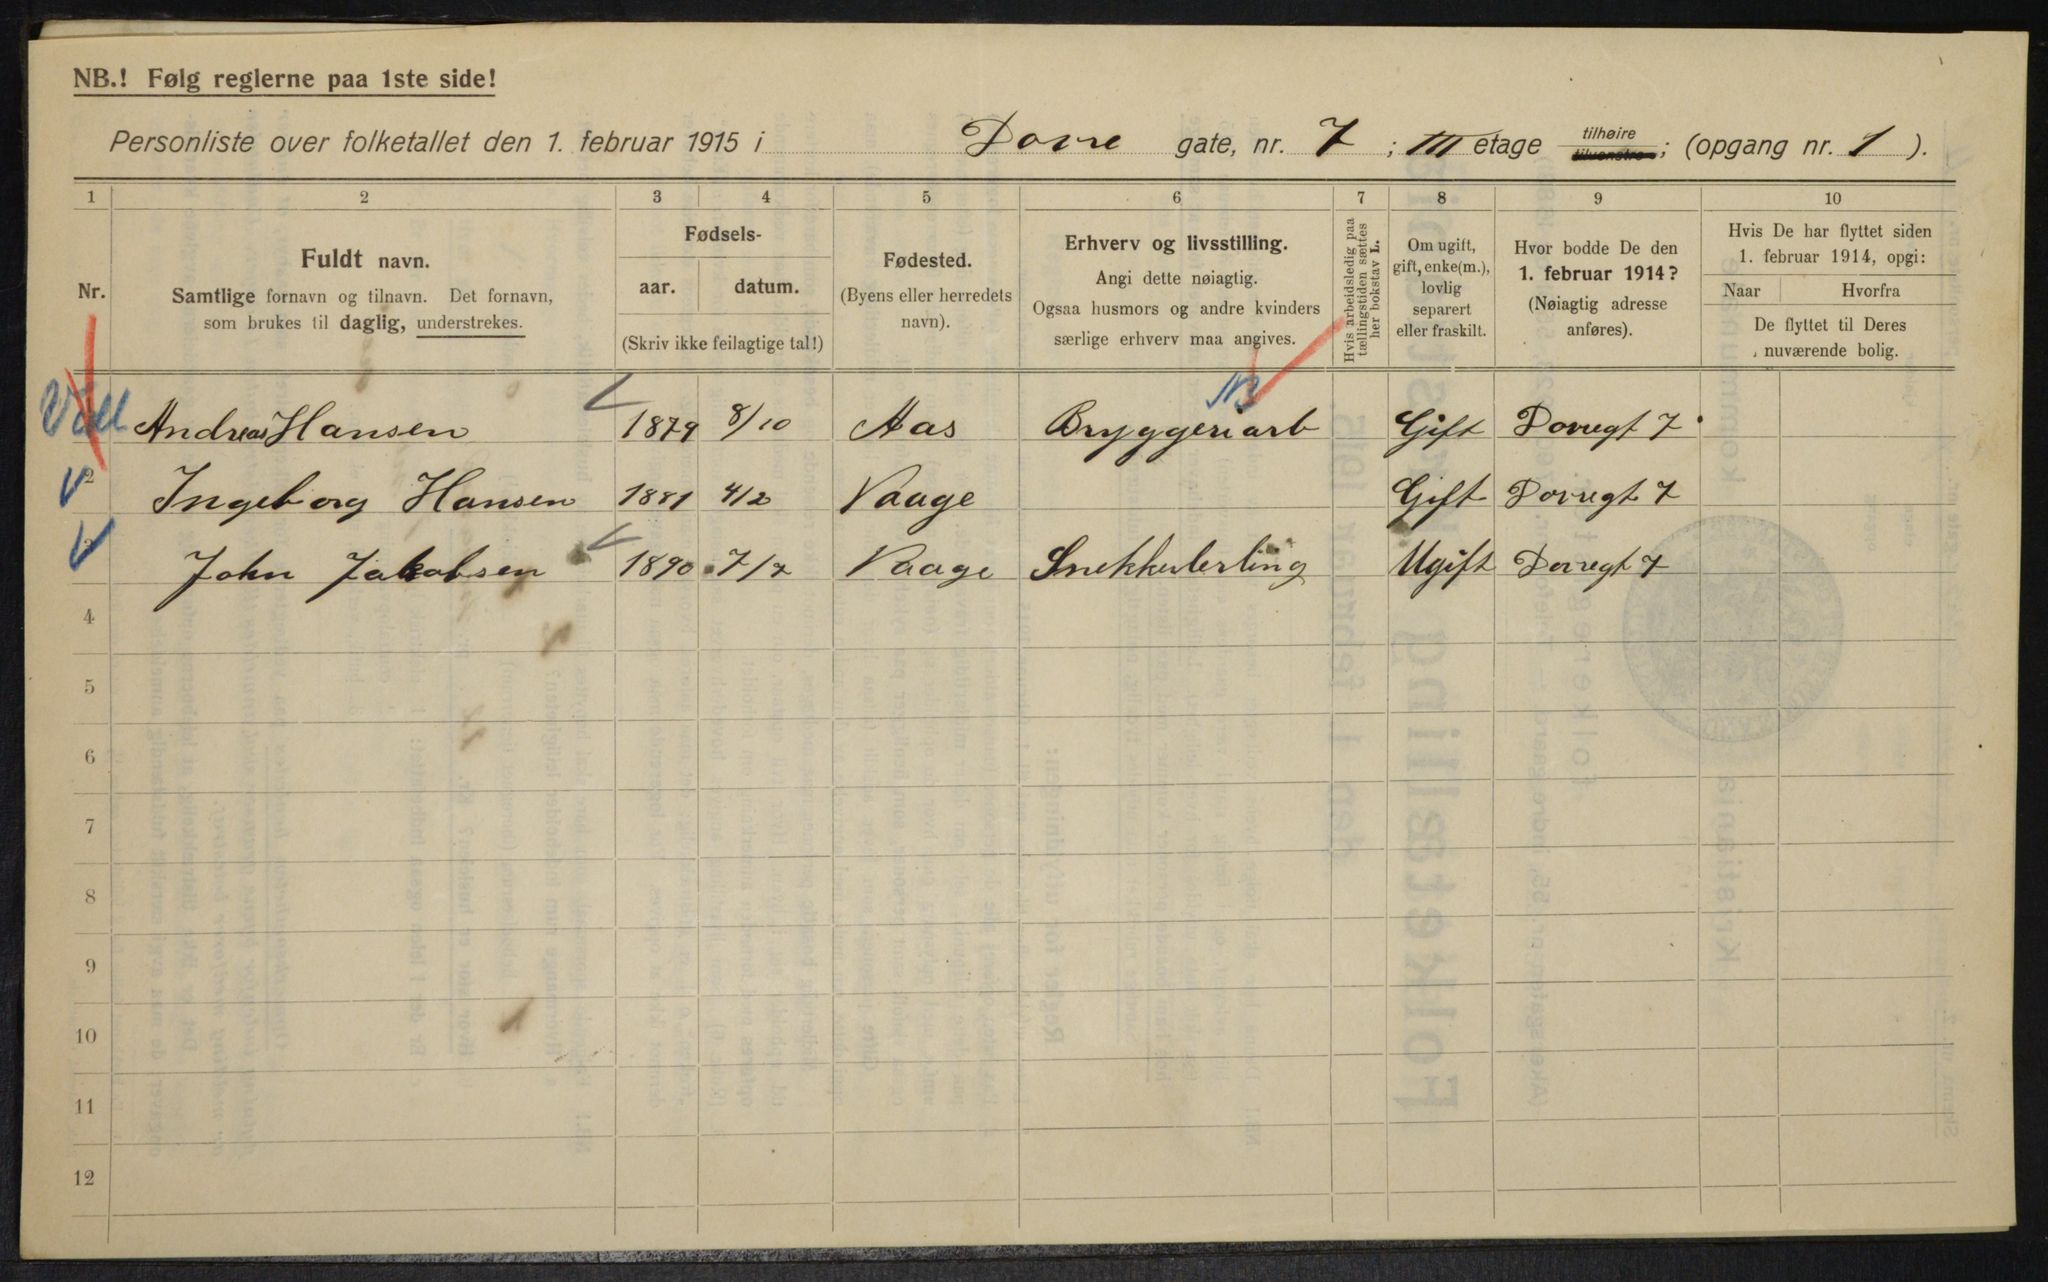 NB.! Følg reglerne paa 1ste side!
Personliste over folketallet den 1. februar 1915 i Dovre gate, nr. 7 ; III etage tilhøire tilvenstre ; (opgang nr. 1 ).
1 2 3 4 5 6 7 8 9 10
Nr.
Fuldt navn.
Samtlige fornavn og tilnavn. Det fornavn,
som brukes til daglig, understrekes.
Fødsels-
aar. datum.
(Skriv ikke feilagtige tal!)
Fødested.
(Byens eller herredets
navn).
Erhverv og livsstilling.
Angi dette nøiagtig.
Ogsaa husmors og andre kvinders
særlige erhverv maa angives.
Hvis arbeidsledig paa
tællingstiden sættes
her bokstav L.
Om ugift,
gift, enke(m.),
lovlig
separert
eller fraskilt.
Hvor bodde De den
1. februar 1914?
(Nøiagtig adresse
anføres).
Hvis De har flyttet siden
1. februar 1914, opgi:
Naar Hvorfra
De flyttet til Deres
nuværende bolig.
NB
Andreas Hansen 1879 8/10 Aas Bryggeriarb Gift Dovregt 7
2 Ingeborg Hansen 1881 4/2 Vaage Gift Dovregt 7
3 John Jakobsen 1890 7/7 Vaage Snekkerlerling Ugift Dovregt 7
4
5
6
7
8
9
10
11
12